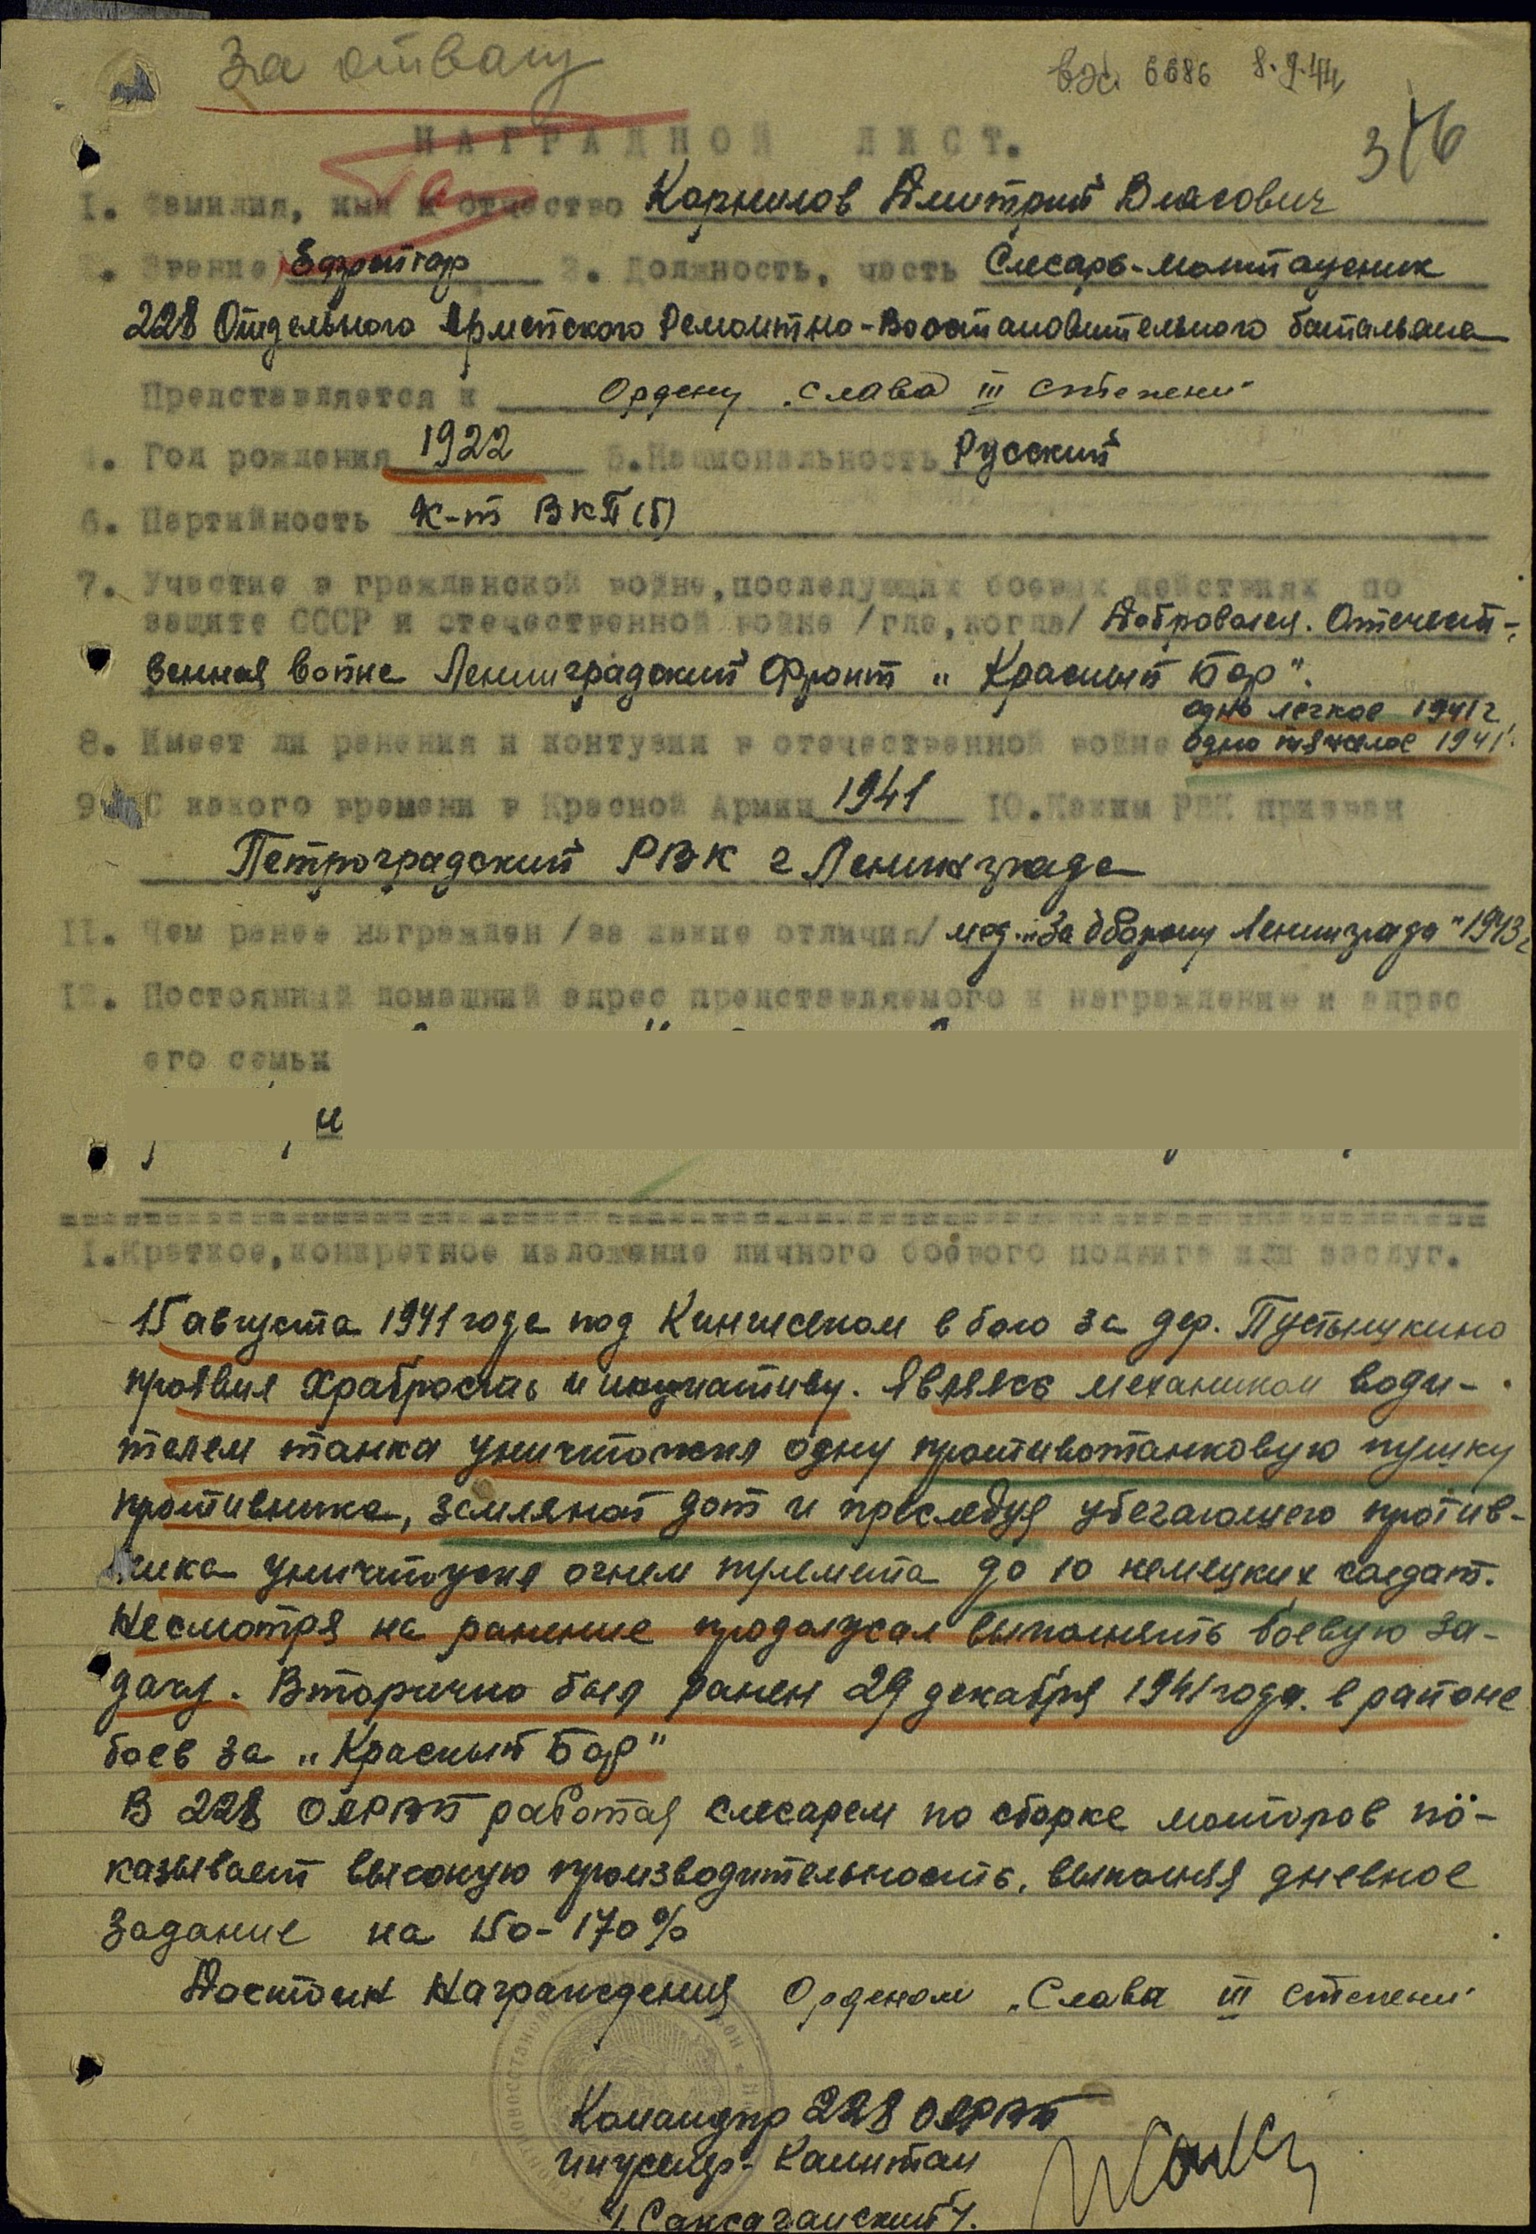 За отвагу
вх. 6686 8.9.44
НАГРАДНОЙ ЛИСТ.
1. Фамилия, имя и отчество Корнилов Дмитрий Власович
2. Звание Ефрейтор 3. Должность, часть Слесарь-мотащеник
228 Отдельного Армейского Ремонтно-Восстановительного батальона
Представляется к Ордену "Слава III степени"
4. Год рождения 1922 5. Национальность Русский
6. Партийность К-т ВКП(б)
7. Участие в гражданской войне, последующих боевых действиях по
защите СССР и отечественной войне /где, когда/ Доброволец. Отечест-
венная война Ленинградский Фронт "Красный Бор".
одно легкое 1941 г.
8. Имеет ли ранения и контузии в отечественной войне одно тяжелое 1941г.
9. С какого времени в Красной Армии 1941 10. Каким РВК призван
Петроградский РВК г Ленинграда
11. Чем ранее награжден /за какие отличия/ мед. "За оборону Ленинграда" 1943 г
12. Постоянный домашний адрес представляемого к награждению и адрес
его семьи
и
1. Краткое, конкретное изложение личного боевого подвига или заслуг.
15 августа 1941 года под Кингисепом в бою за дер. Пустынукино
проявил храбрость и инициативу. Являясь механиком води-
телем танка уничтожил одну противотанковую пушку
противника, земляной дот и преследуя убегающего против-
ника уничтожил огнем пулемета до 10 немецких солдат.
Несмотря на ранение продолжал выполнять боевую за-
дачу. Вторично был ранен 29 декабря 1941 года. в районе
боев за "Красный Бор"
В 228 ОАРВБ работая слесарем по сборке моторов по-
казывает высокую производительность, выполняя дневное
задание на 150-170%
Достоин Награждения Орденом "Слава III степени"
Командир 228 ОАРВБ
инженер-Капитан
/Саксаганский/.